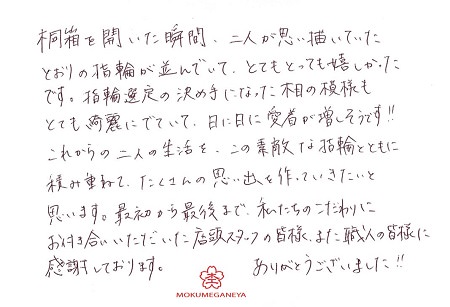 桐箱を開いた瞬間、二人が思い描いていた
とおりの指輪が並んでいて、とてもとっても嬉しかった
です。指輪選定の決め手になった木目の模様も
とても綺麗にでていて、日に日に愛着が増しそうです!!
これからの二人の生活を、この素敵な指輪とともに
積み重ねて、たくさんの思い出を作っていきたいと
思います。最初から最後まで、私たちのこだわりに
お付き合いいただいた店頭スタッフの皆様、また職人の皆様に
感謝しております。 ありがとうございました!!
MOKUMEGANEYA